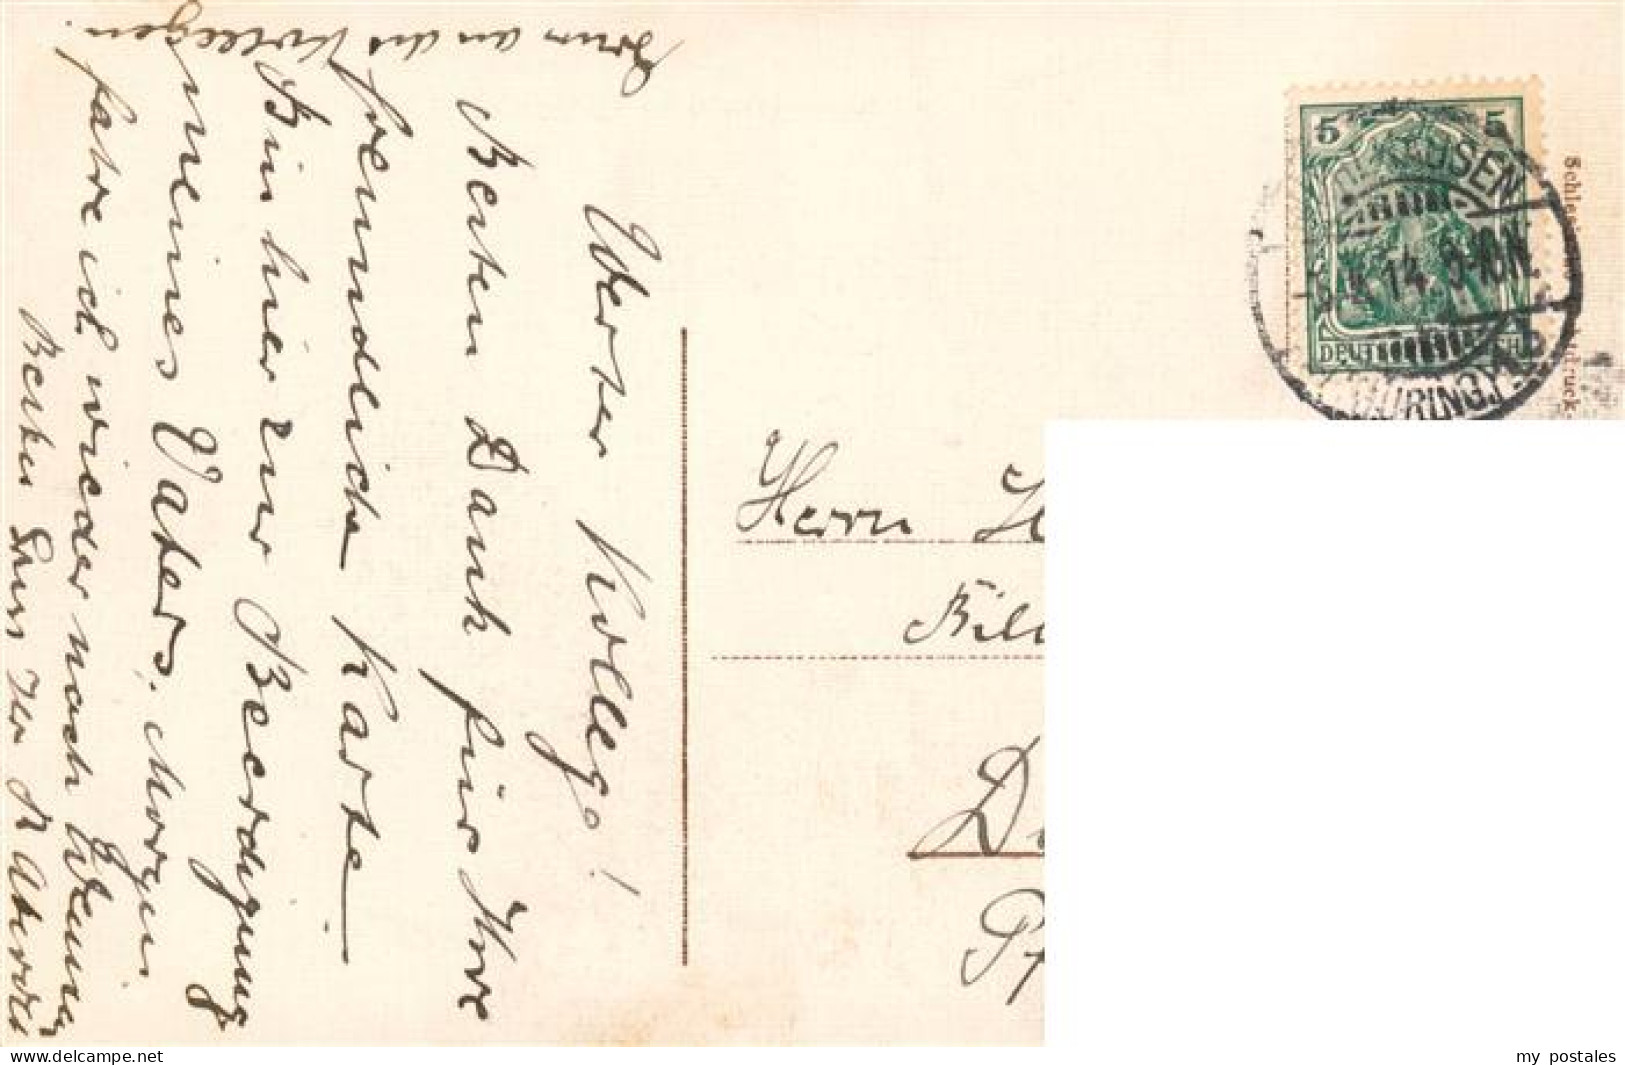 Werter Kollege!
Besten Dank für Ihre
freundliche Karte
Bin hier zur Beerdigung
meines Vaters. Morgen
fahre ich wieder nach
Besten Gruss Ihr
Gruss an die Kollegen.
5 5
HAUSEN
14. 9-10N.
DEUT CH
(THÜRING.)
Herrn
Bild
www.delcampe.net
my postales